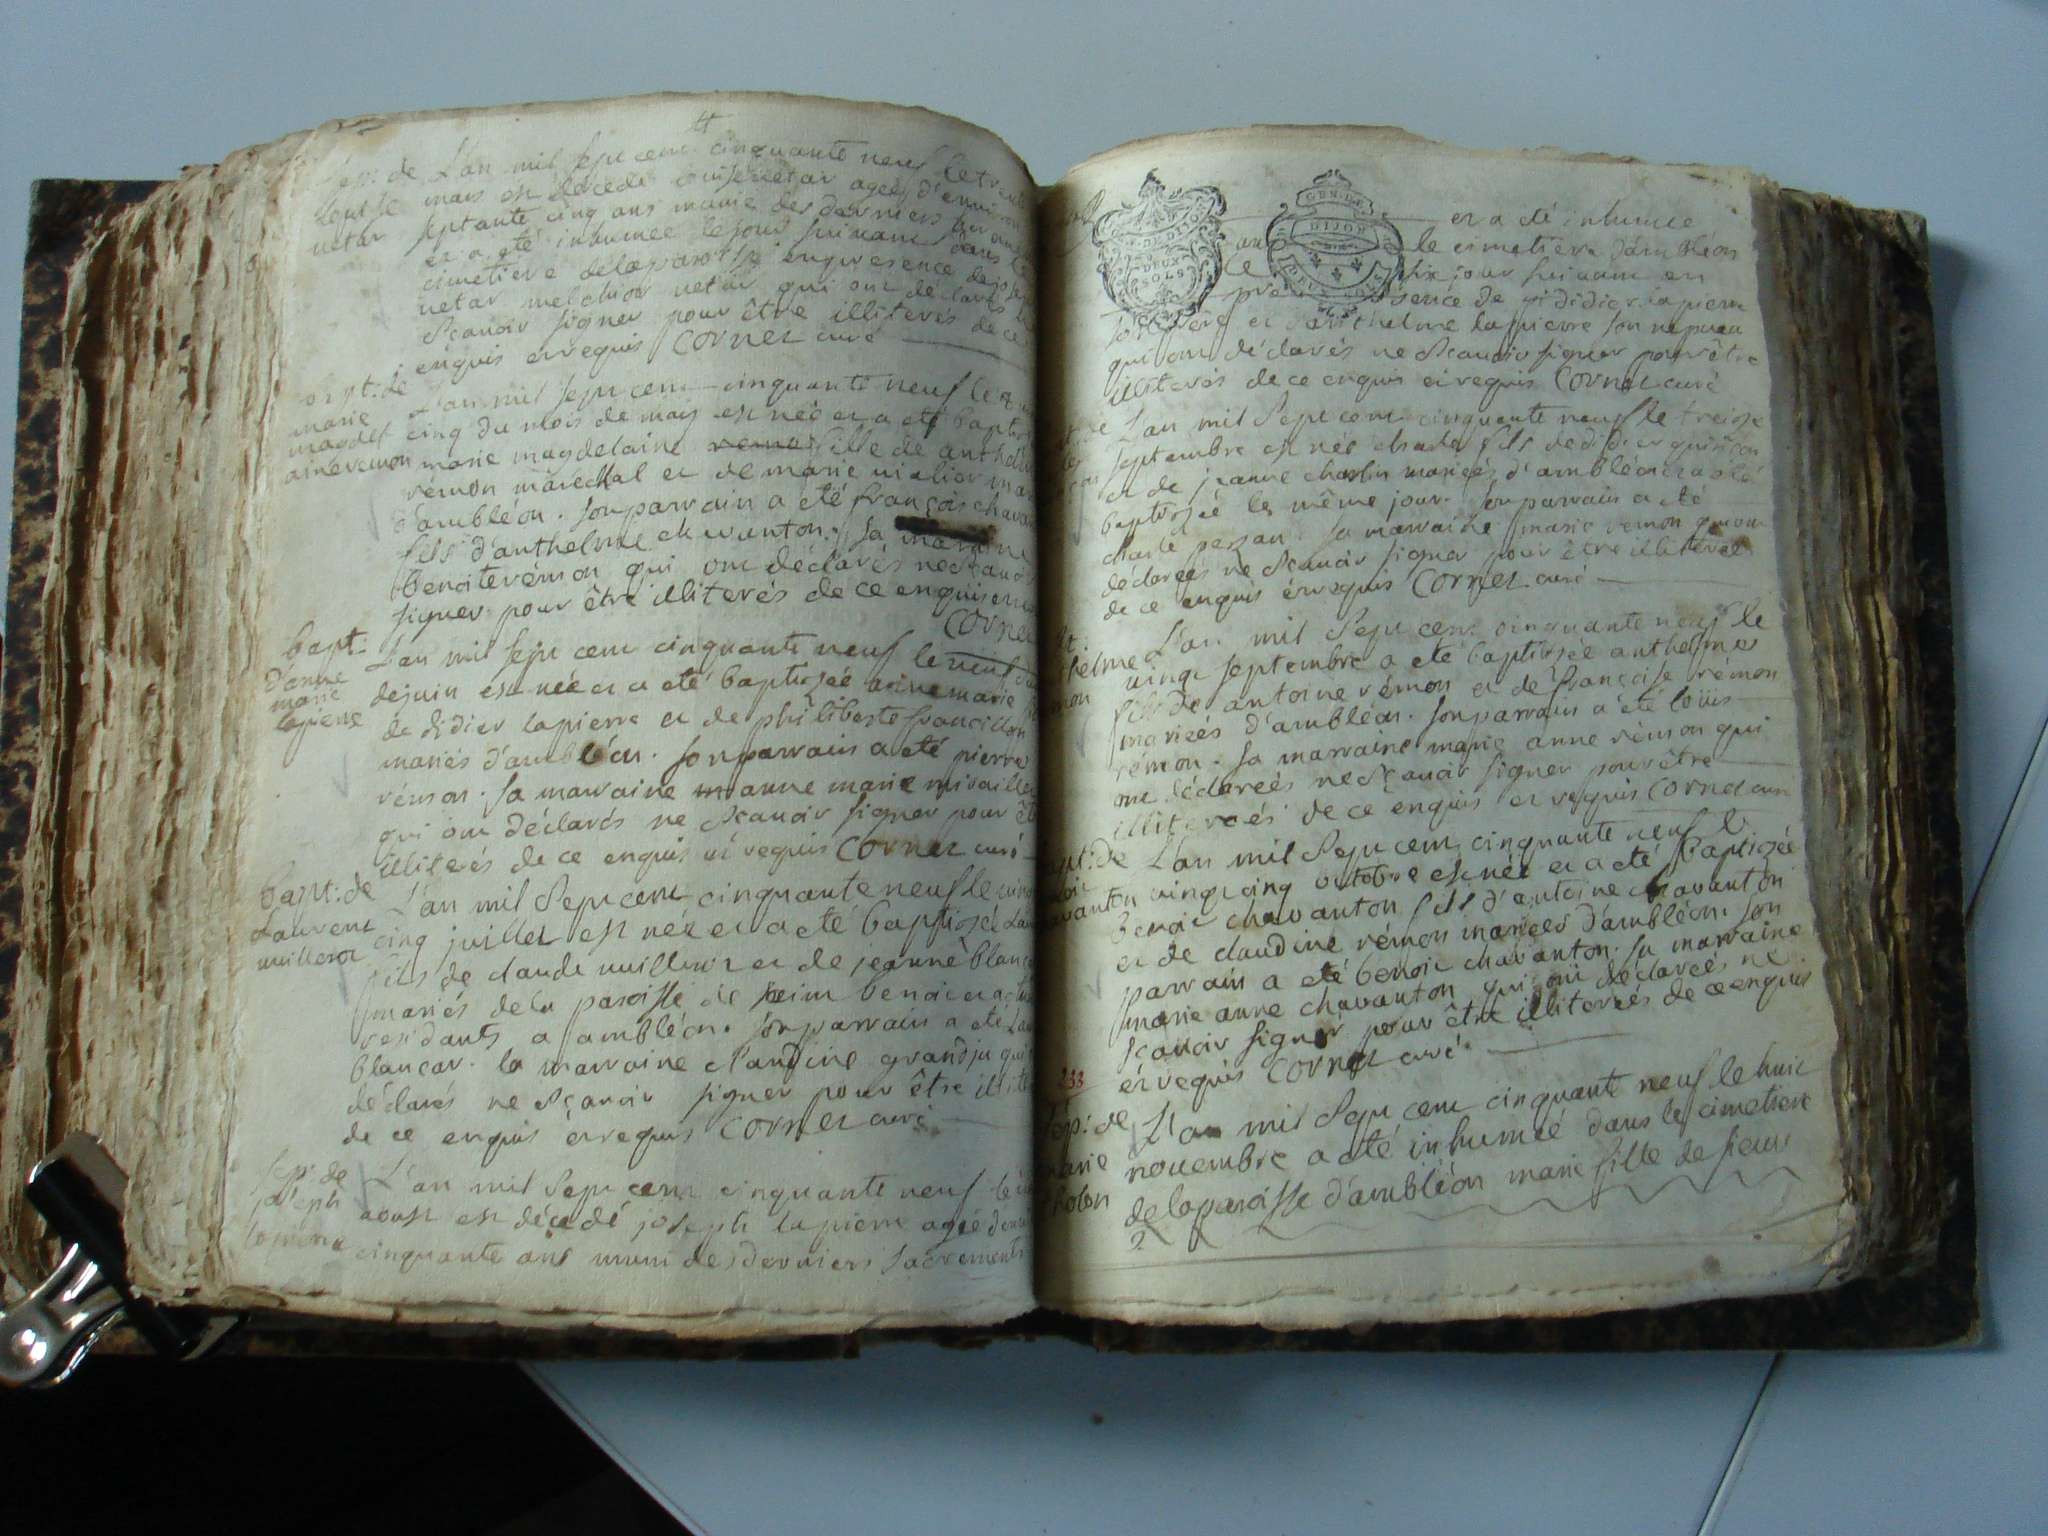 sep: de L'an mil sept cent cinquante neuf le trente
Louise mars est décedé Louise netar ageé d'environ
netar septante cinq ans munie des derniers
et a eté inhumée le jour suivant dans le
cimetiere de la paroisse en presence de joseph
netar melchior netar qui ont déclarés ne
sçavoir signer pour être illiterés de ce
enquis et requis Cornet curé
bapt: de L'an mil sept cent cinquante neuf le
marie
magdel cinq du mois de may est née et a eté baptisé
aine remon marie magdelaine fille de anthelme
rémon maréchal et de marie
d'ambléon. son parrain a eté françois chavan
fils d'anthelme chavanton. sa marraine
benoite rémon qui ont déclarés ne sçavoir
signer pour être illiterés de ce enquis et
Cornet
bapt: L'an mil sept cent cinquante neuf le neuf du
d'anne
marie de juin est née et a eté baptisée anne marie
lapierre de didier lapierre et de philiberte francillon
mariés d'ambléon. son parrain a eté pierre
rémon. sa marraine anne marie
qui ont déclarés ne sçavoir signer pour êt
illiterés de ce enquis et requis Cornet curé
bapt: de L'an mil sept cent cinquante neuf le vingt
Laurent cinq juillet est née et a eté baptiseé Lau
vuillerot fils de claude vuillerot et de jeanne blanca
mariés de la paroisse de benoit et
residants a ambléon. son parrain a eté Lau
blancar. la marraine claudine grandju qui
déclarés ne sçavoir signer pour être illite
de ce enquis et requis Cornet curé
sep: de L'an mil sept cent cinquante neuf le
joseph aoust est décedé joseph lapierre ageé
lapierre cinquante ans muni des derniers sacrements
GEN. DE
DIJON
DEUX
SOLS
et a eté inhumée
le cimetiere d'ambléon
le jour suivant en
presence de didier lapierre
son frere et d'anthelme lapierre son nepveu
qui ont déclarés ne sçavoir signer pour être
illiterés de ce enquis et requis Cornet curé
L'an mil sept cent cinquante neuf le treise
septembre est née charle fils de didier
et de jeanne charlin mariés d'ambléon et a eté
baptiseé le même jour. son parrain a eté
charle persan. sa marraine marie remon qui ont
déclareés ne sçavoir signer pour être illiteres
de ce enquis et requis Cornet curé
L'an mil sept cent cinquante neuf le
thelme vingt septembre a eté baptiseé anthelme
mon fils de antoine rémon et de françoise rémon
marieés d'ambléon. son parrain a eté loüis
rémon. sa marraine marie anne rémon qui
ont déclareés ne sçavoir signer pour être
illitereés de ce enquis et requis Cornet curé
bapt: de L'an mil sept cent cinquante neuf le
vanton vingt cinq octobre est née et a eté baptiseé
benoit chavanton fils d'antoine chavanton
et de claudine rémon marieés d'ambléon. son
parrain a eté benoit chavanton. sa marraine
marie anne chavanton qui ont déclareés ne
sçavoir signer pour être illitereés de ce enquis
et requis Cornet curé.
233
sep: de L'an mil sept cent cinquante neuf le huit
marie novembre a eté inhumeé dans le cimetiere
tholon de la paroisse d'ambléon marie fille de sieur